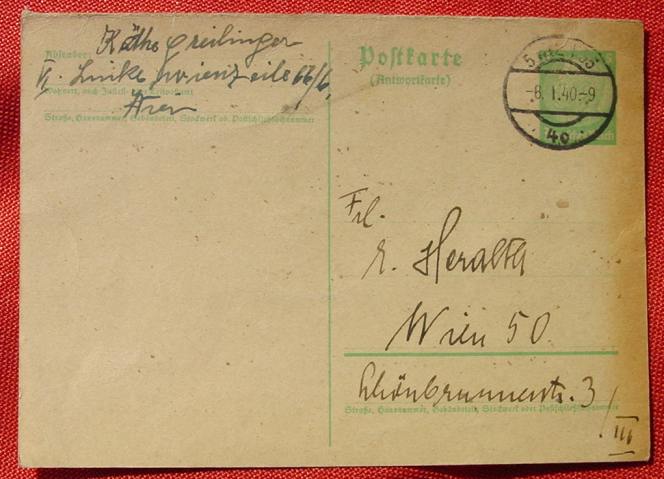 Käthe Greilinger
Absender:
VI. Linke Wienzeile 66/6
Wohnort, auch Zustell- oder Leitpostamt
Wien
Straße, Hausnummer, Gebäudeteil, Stockwerk od. Postschließfachnummer
Postkarte
(Antwortkarte)
-8. 1. 40.-9
40
Frl.
Wien 50
Schönbrunnerstr. 3/
III
Straße, Hausnummer, Gebäudeteil, Stockwerk oder Postschließfachnummer